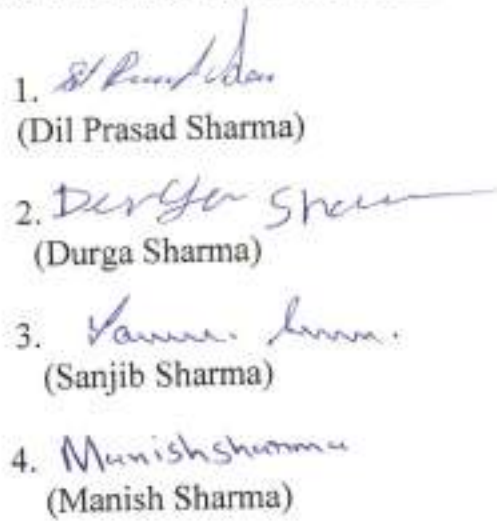 1.
(Dil Prasad Sharma)
2. Durga Sharm
(Durga Sharma)
3.
(Sanjib Sharma)
4. Manishsharma
(Manish Sharma)